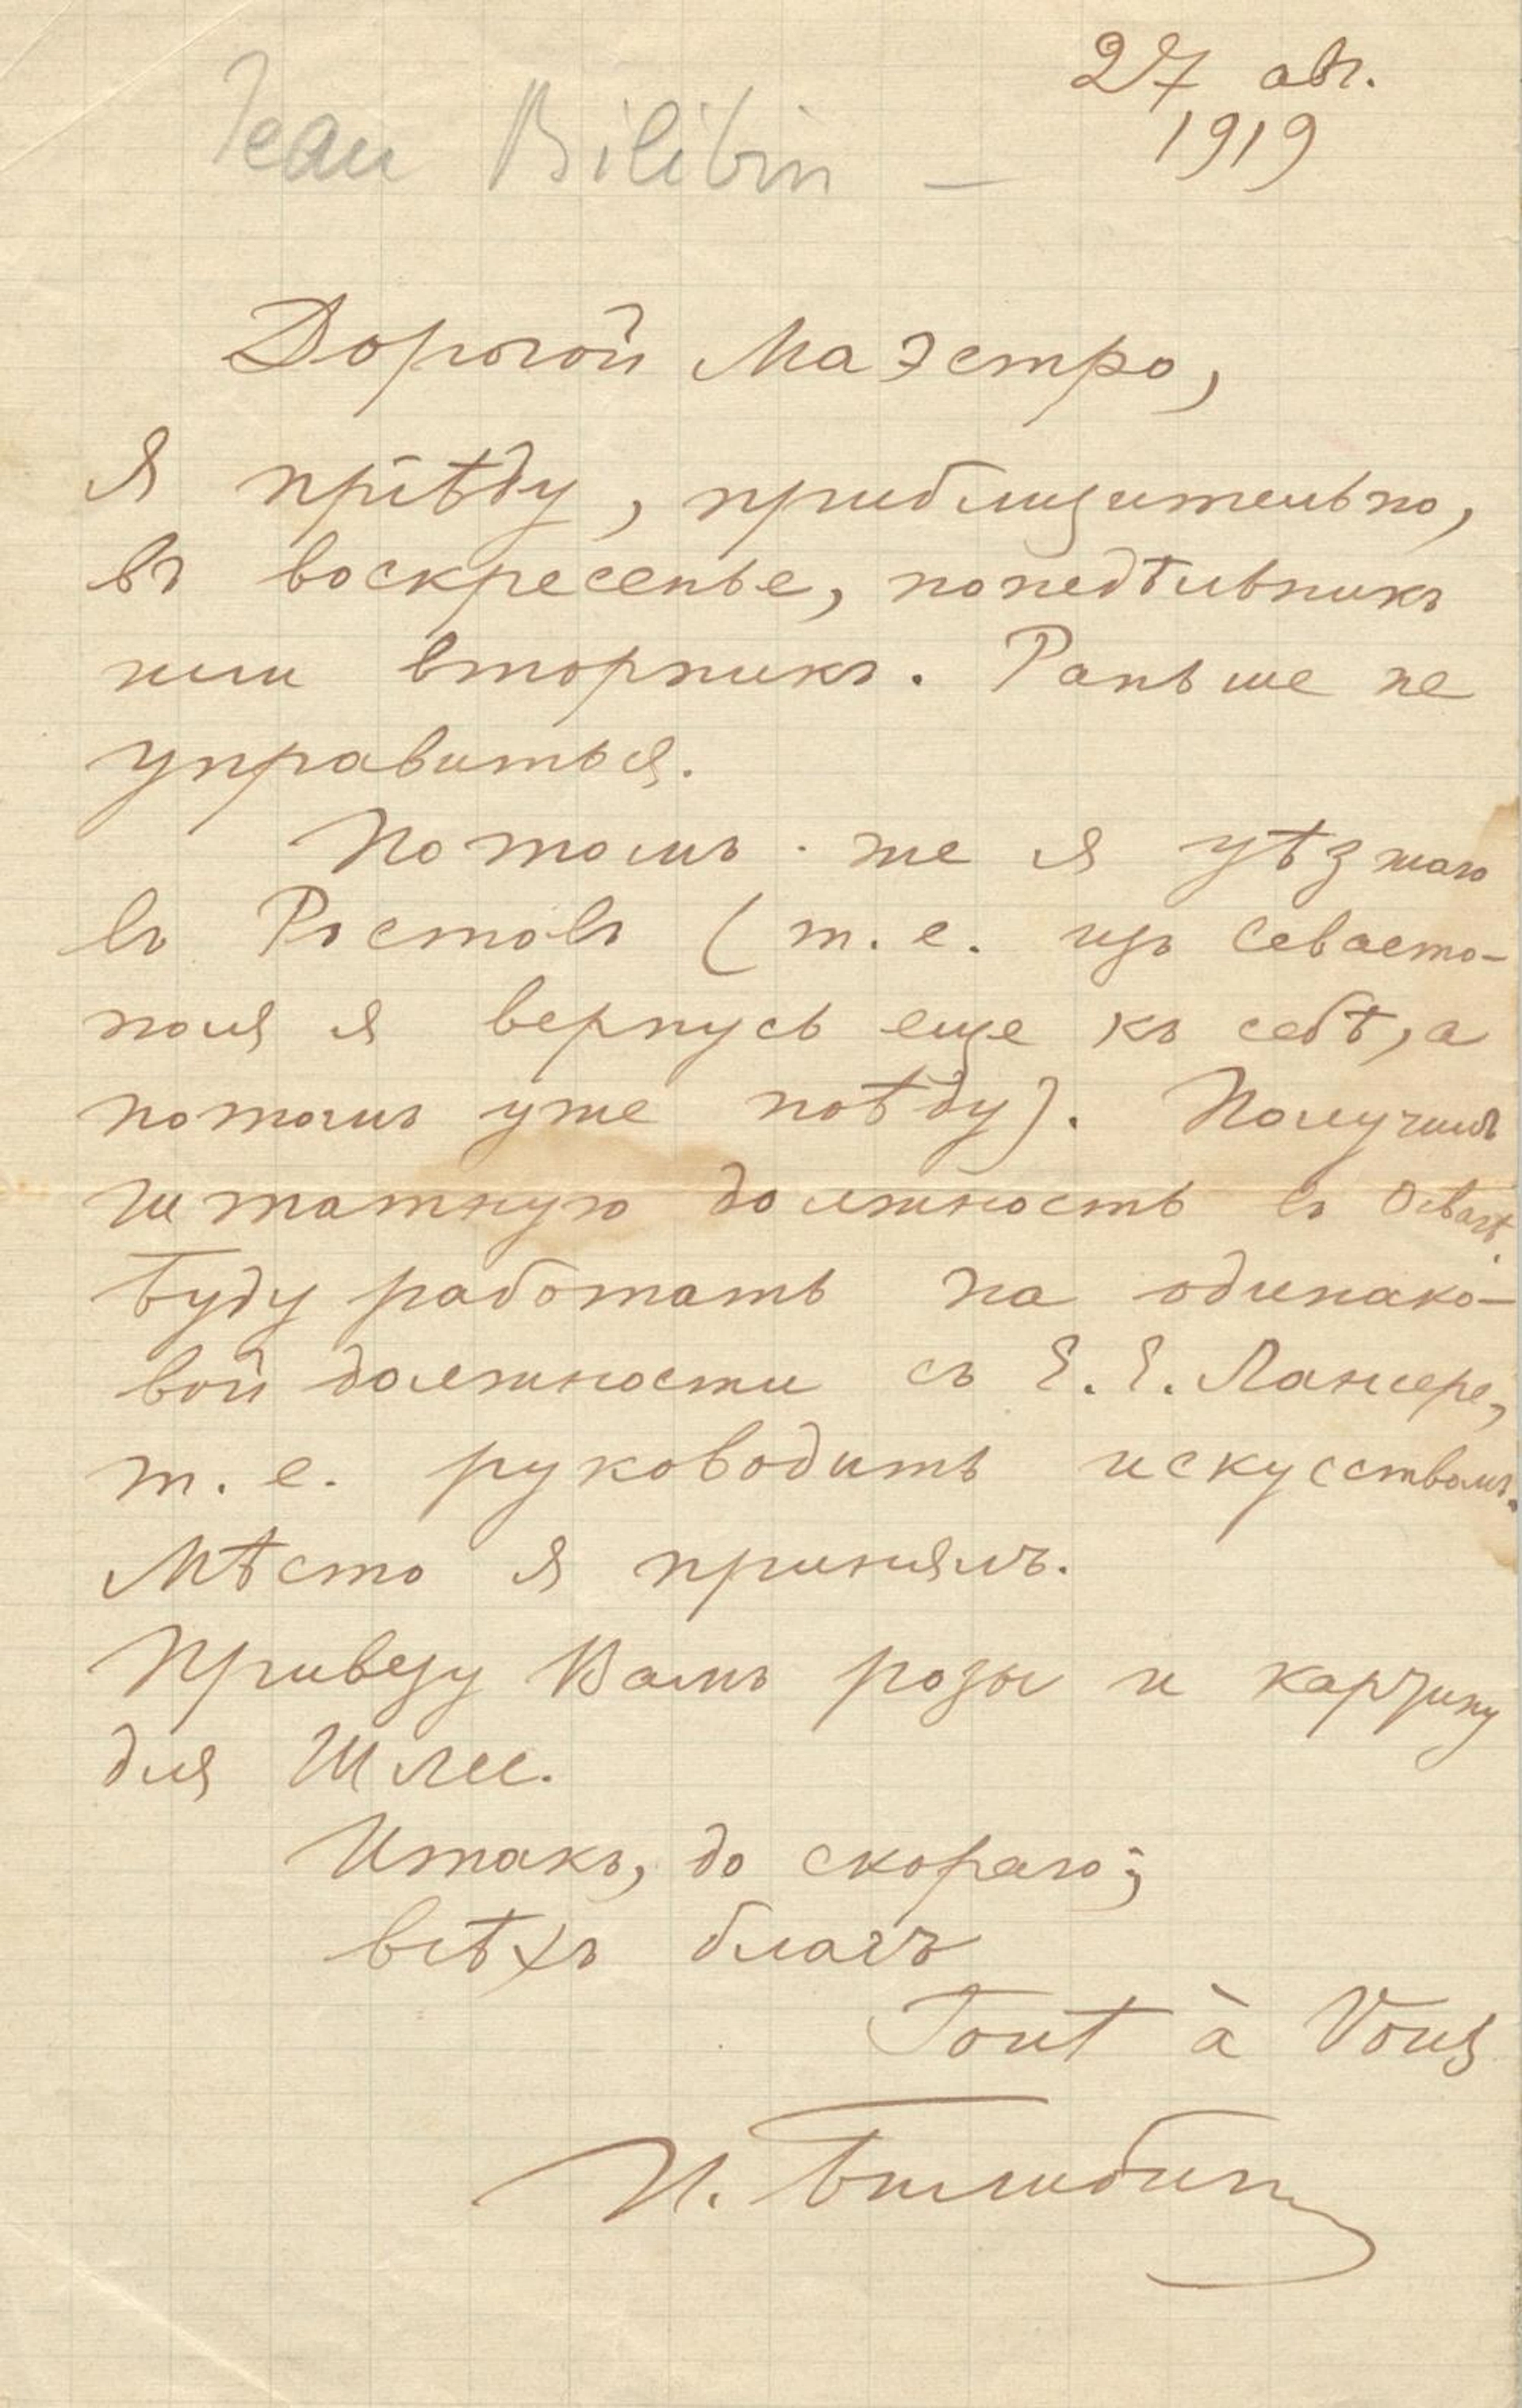 27 авг.
Jean Bilibin —
1919
Дорогой Маэстро,
Я пріѣду, приблизительно,
въ воскресенье, понедѣльникъ
или вторникъ. Раньше не
управиться.
Потомъ же я уѣзжаю
въ Ростовъ (т. е. изъ Севасто-
поля я вернусь еще къ себѣ, а
потомъ уже поѣду). Получилъ
штатную должность въ Освагѣ.
Буду работать на одинако-
вой должности съ Е. Е. Лансере,
т. е. руководить искусствомъ.
Мѣсто я принялъ.
Привезу Вамъ розы и карзину
для Шлее.
Итакъ, до скораго;
всѣхъ благъ
Tout à Vous
И. Билибин